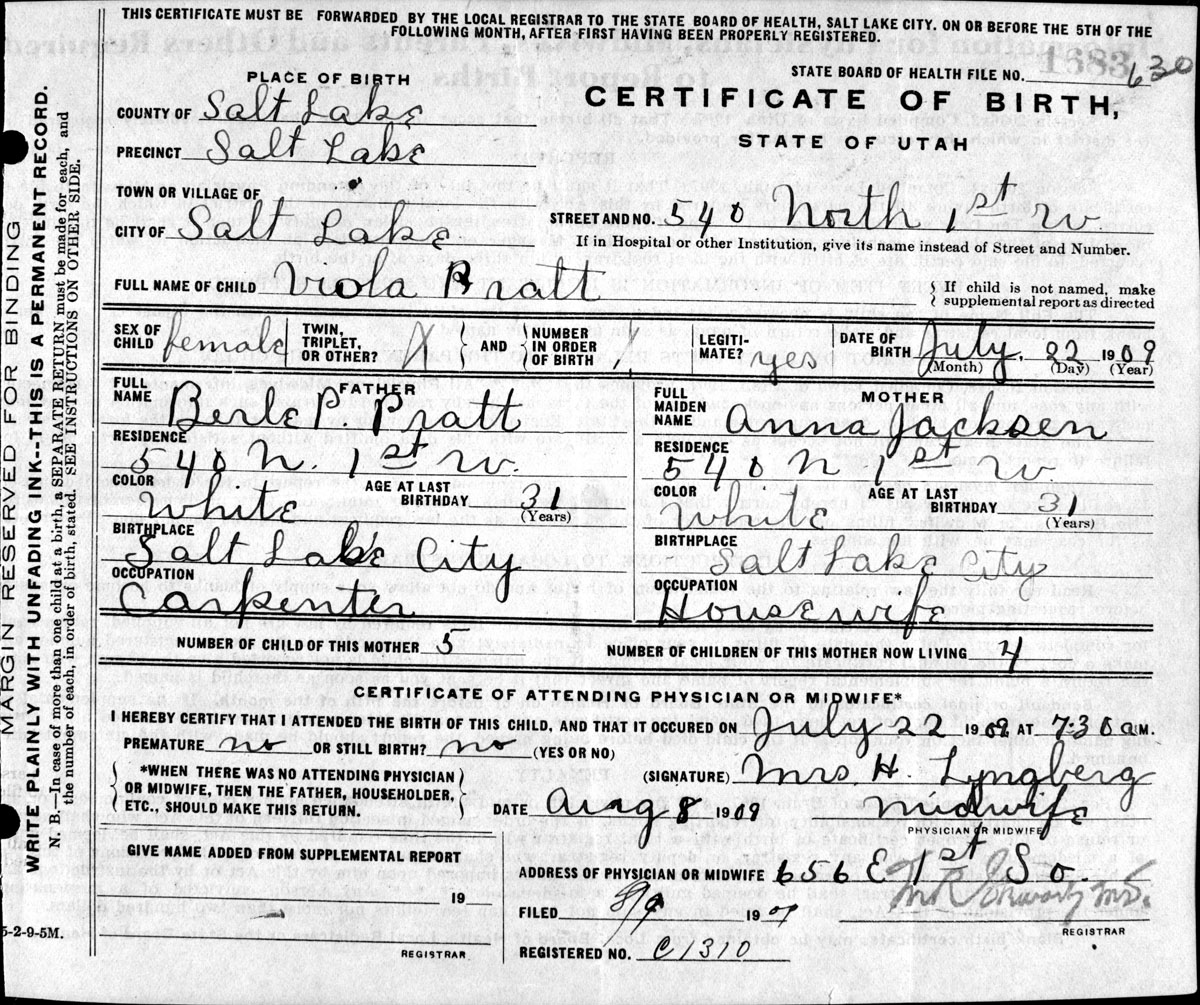 THIS CERTIFICATE MUST BE FORWARDED BY THE LOCAL REGISTRAR TO THE STATE BOARD OF HEALTH, SALT LAKE CITY, ON OR BEFORE THE 5TH OF THE
FOLLOWING MONTH, AFTER FIRST HAVING BEEN PROPERLY REGISTERED.
MARGIN RESERVED FOR BINDING
WRITE PLAINLY WITH UNFADING INK--THIS IS A PERMANENT RECORD.
N. B.—In case of more than one child at a birth, a SEPARATE RETURN must be made for each, and
the number of each, in order of birth, stated. SEE INSTRUCTIONS ON OTHER SIDE.
PLACE OF BIRTH
STATE BOARD OF HEALTH FILE NO. 630
1683
COUNTY OF Salt Lake
CERTIFICATE OF BIRTH,
PRECINCT Salt Lake
STATE OF UTAH
TOWN OR VILLAGE OF
CITY OF Salt Lake
STREET AND NO. 540 North 1st W
If in Hospital or other Institution, give its name instead of Street and Number.
FULL NAME OF CHILD Viola Pratt
If child is not named, make
supplemental report as directed
SEX OF CHILD female
TWIN, TRIPLET, OR OTHER?
AND
NUMBER IN ORDER OF BIRTH
LEGITI-MATE? yes
DATE OF BIRTH July 22 1909
(Month) (Day) (Year)
FATHER
FULL NAME Berle P. Pratt
RESIDENCE
540 N. 1st W.
COLOR White
AGE AT LAST BIRTHDAY 31
(Years)
BIRTHPLACE
Salt Lake City
OCCUPATION
Carpenter
MOTHER
FULL MAIDEN NAME Anna Jacksen
RESIDENCE
540 N 1st W
COLOR White
AGE AT LAST BIRTHDAY 31
(Years)
BIRTHPLACE
Salt Lake City
OCCUPATION
Housewife
NUMBER OF CHILD OF THIS MOTHER 5
NUMBER OF CHILDREN OF THIS MOTHER NOW LIVING 4
CERTIFICATE OF ATTENDING PHYSICIAN OR MIDWIFE*
I HEREBY CERTIFY THAT I ATTENDED THE BIRTH OF THIS CHILD, AND THAT IT OCCURED ON July 22 1909, AT 7:30 A M.
PREMATURE no OR STILL BIRTH? no (YES OR NO)
*WHEN THERE WAS NO ATTENDING PHYSICIAN
OR MIDWIFE, THEN THE FATHER, HOUSEHOLDER,
ETC., SHOULD MAKE THIS RETURN.
(SIGNATURE) Mrs H. Lyngberg
DATE Aug 8 1909 midwife
PHYSICIAN OR MIDWIFE
GIVE NAME ADDED FROM SUPPLEMENTAL REPORT
19
REGISTRAR.
ADDRESS OF PHYSICIAN OR MIDWIFE 656 E 1st So.
FILED 8/9 1909
REGISTRAR
REGISTERED NO. C1310
5-2-9-5M.